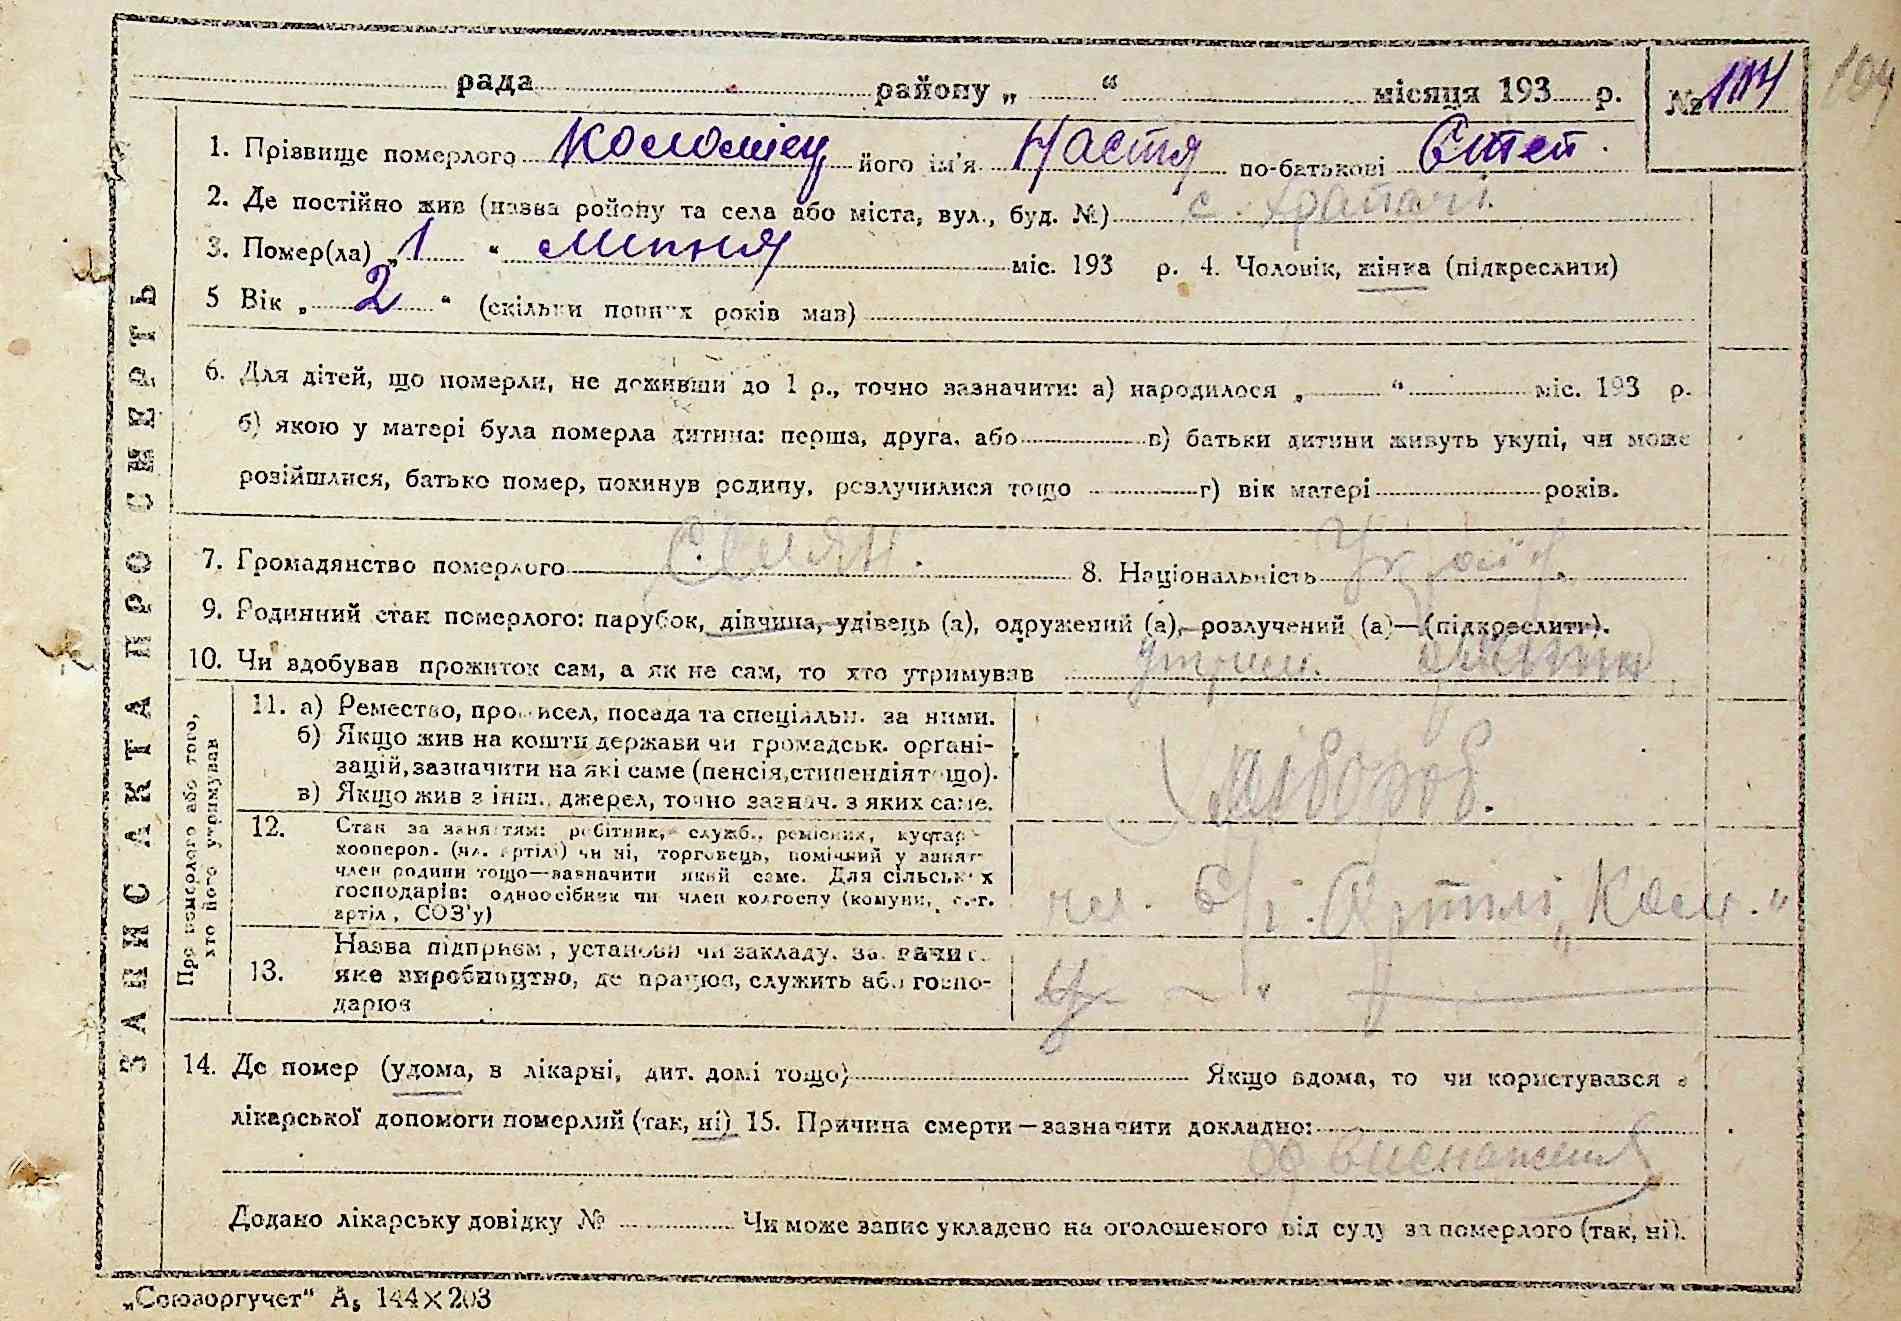 рада района „ “ місяця 193 р. № 104 104
1. Прізвище померлого Коломієц його ім'я Настя по-батькові Степ.
2. Де постійно жив (назва ройону та села або міста, вул., буд. №) с.
3. Помер(ла) „ 1 “ липня міс. 193 р. 4. Чоловік, жінка (підкреслити)
5 Вік „ 2 “ (скільки повних років мав)
6. Для дітей, що померли, не доживши до 1 р., точно зазначити: а) народилося „ “ міс. 193 р.
б) якою у матері була померла дитина: перша, друга, або в) батьки дитини живуть укупі, чи може
розійшлися, батько помер, покинув родину, розлучилися тощо г) вік матері років.
7. Громадянство померлого Селян. 8. Національність Україн.
9. Родинний стан померлого: парубок, дівчина, удівець (а), одружений (а), розлучений (а)—(підкреслити).
10. Чи здобував прожиток сам, а як не сам, то хто утримував утрим.
ЗАПИС АКТА ПРО СМЕРТЬ
Про померлого або того,
хто його утримував
11. а) Ремество, промисел, посада та спеціяльн. за ними.
б) Якщо жив на кошти держави чи громадськ. органі-
зацій, зазначити на які саме (пенсія, стипендія тощо).
в) Якщо жив з інш. джерел, точно зазнач. з яких саме.
хлібороб.
12. Стан за заняттям: робітник, служб., ремісник, кустар
кооперов. (чл. артілі) чи ні, торговець, помічний у занят
член родини тощо—зазначити який саме. Для сільських
господарів: одноосібник чи член колгоспу (комуни, с.-г.
артіл, СОЗ'у)
чл. с/г. Артілі „
13. Назва підприєм, установи чи закладу, зазначит.
яке виробництво, де працює, служить або госпо-
дарює
14. Де помер (удома, в лікарні, дит. домі тощо) Якщо вдома, то чи користувався з
лікарської допомоги померлий (так, ні) 15. Причина смерти—зазначити докладно:
від виснаження
Додано лікарську довідку № Чи може запис укладено на оголошеного від суду за померлого (так, ні).
„Союзоргучет“ А₅ 144×203